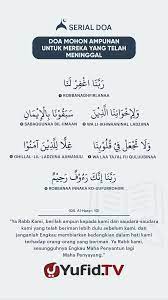 SERIAL DOA
DOA MOHON AMPUNAN
UNTUK MEREKA YANG TELAH
MENINGGAL
رَبَّنَا اغْفِرْ لَنَا
ROBBANAGHFIRLANAA
وَلِإِخْوَانِنَا الَّذِيْنَ
WA LI IKHWANINNAL LADZIINA
سَبَقُوْنَا بِالْإِيْمَانِ
SABAQUUNAA BIL IIMAAN
وَلَا تَجْعَلْ فِيْ قُلُوْبِنَا
WA LAA TAJ'AL FII QULUUBINAA
غِلًّا لِلَّذِيْنَ آمَنُوْا
GHILLAL-LIL-LADZIINA AAMANUU
رَبَّنَا إِنَّكَ رَءُوْفٌ رَحِيْمٌ
ROBBANAA INNAKA RO-UUFURROHIIM
(QS. Al Hasyr: 10)
"Ya Rabb Kami, berilah ampun kepada kami dan saudara-saudara
kami yang telah beriman lebih dulu sebelum kami, dan
janganlah Engkau membiarkan kedengkian dalam hati kami
terhadap orang-orang yang beriman. Ya Rabb kami,
sesungguhnya Engkau Maha Penyantun lagi
Maha Penyayang."
YUFID.TV